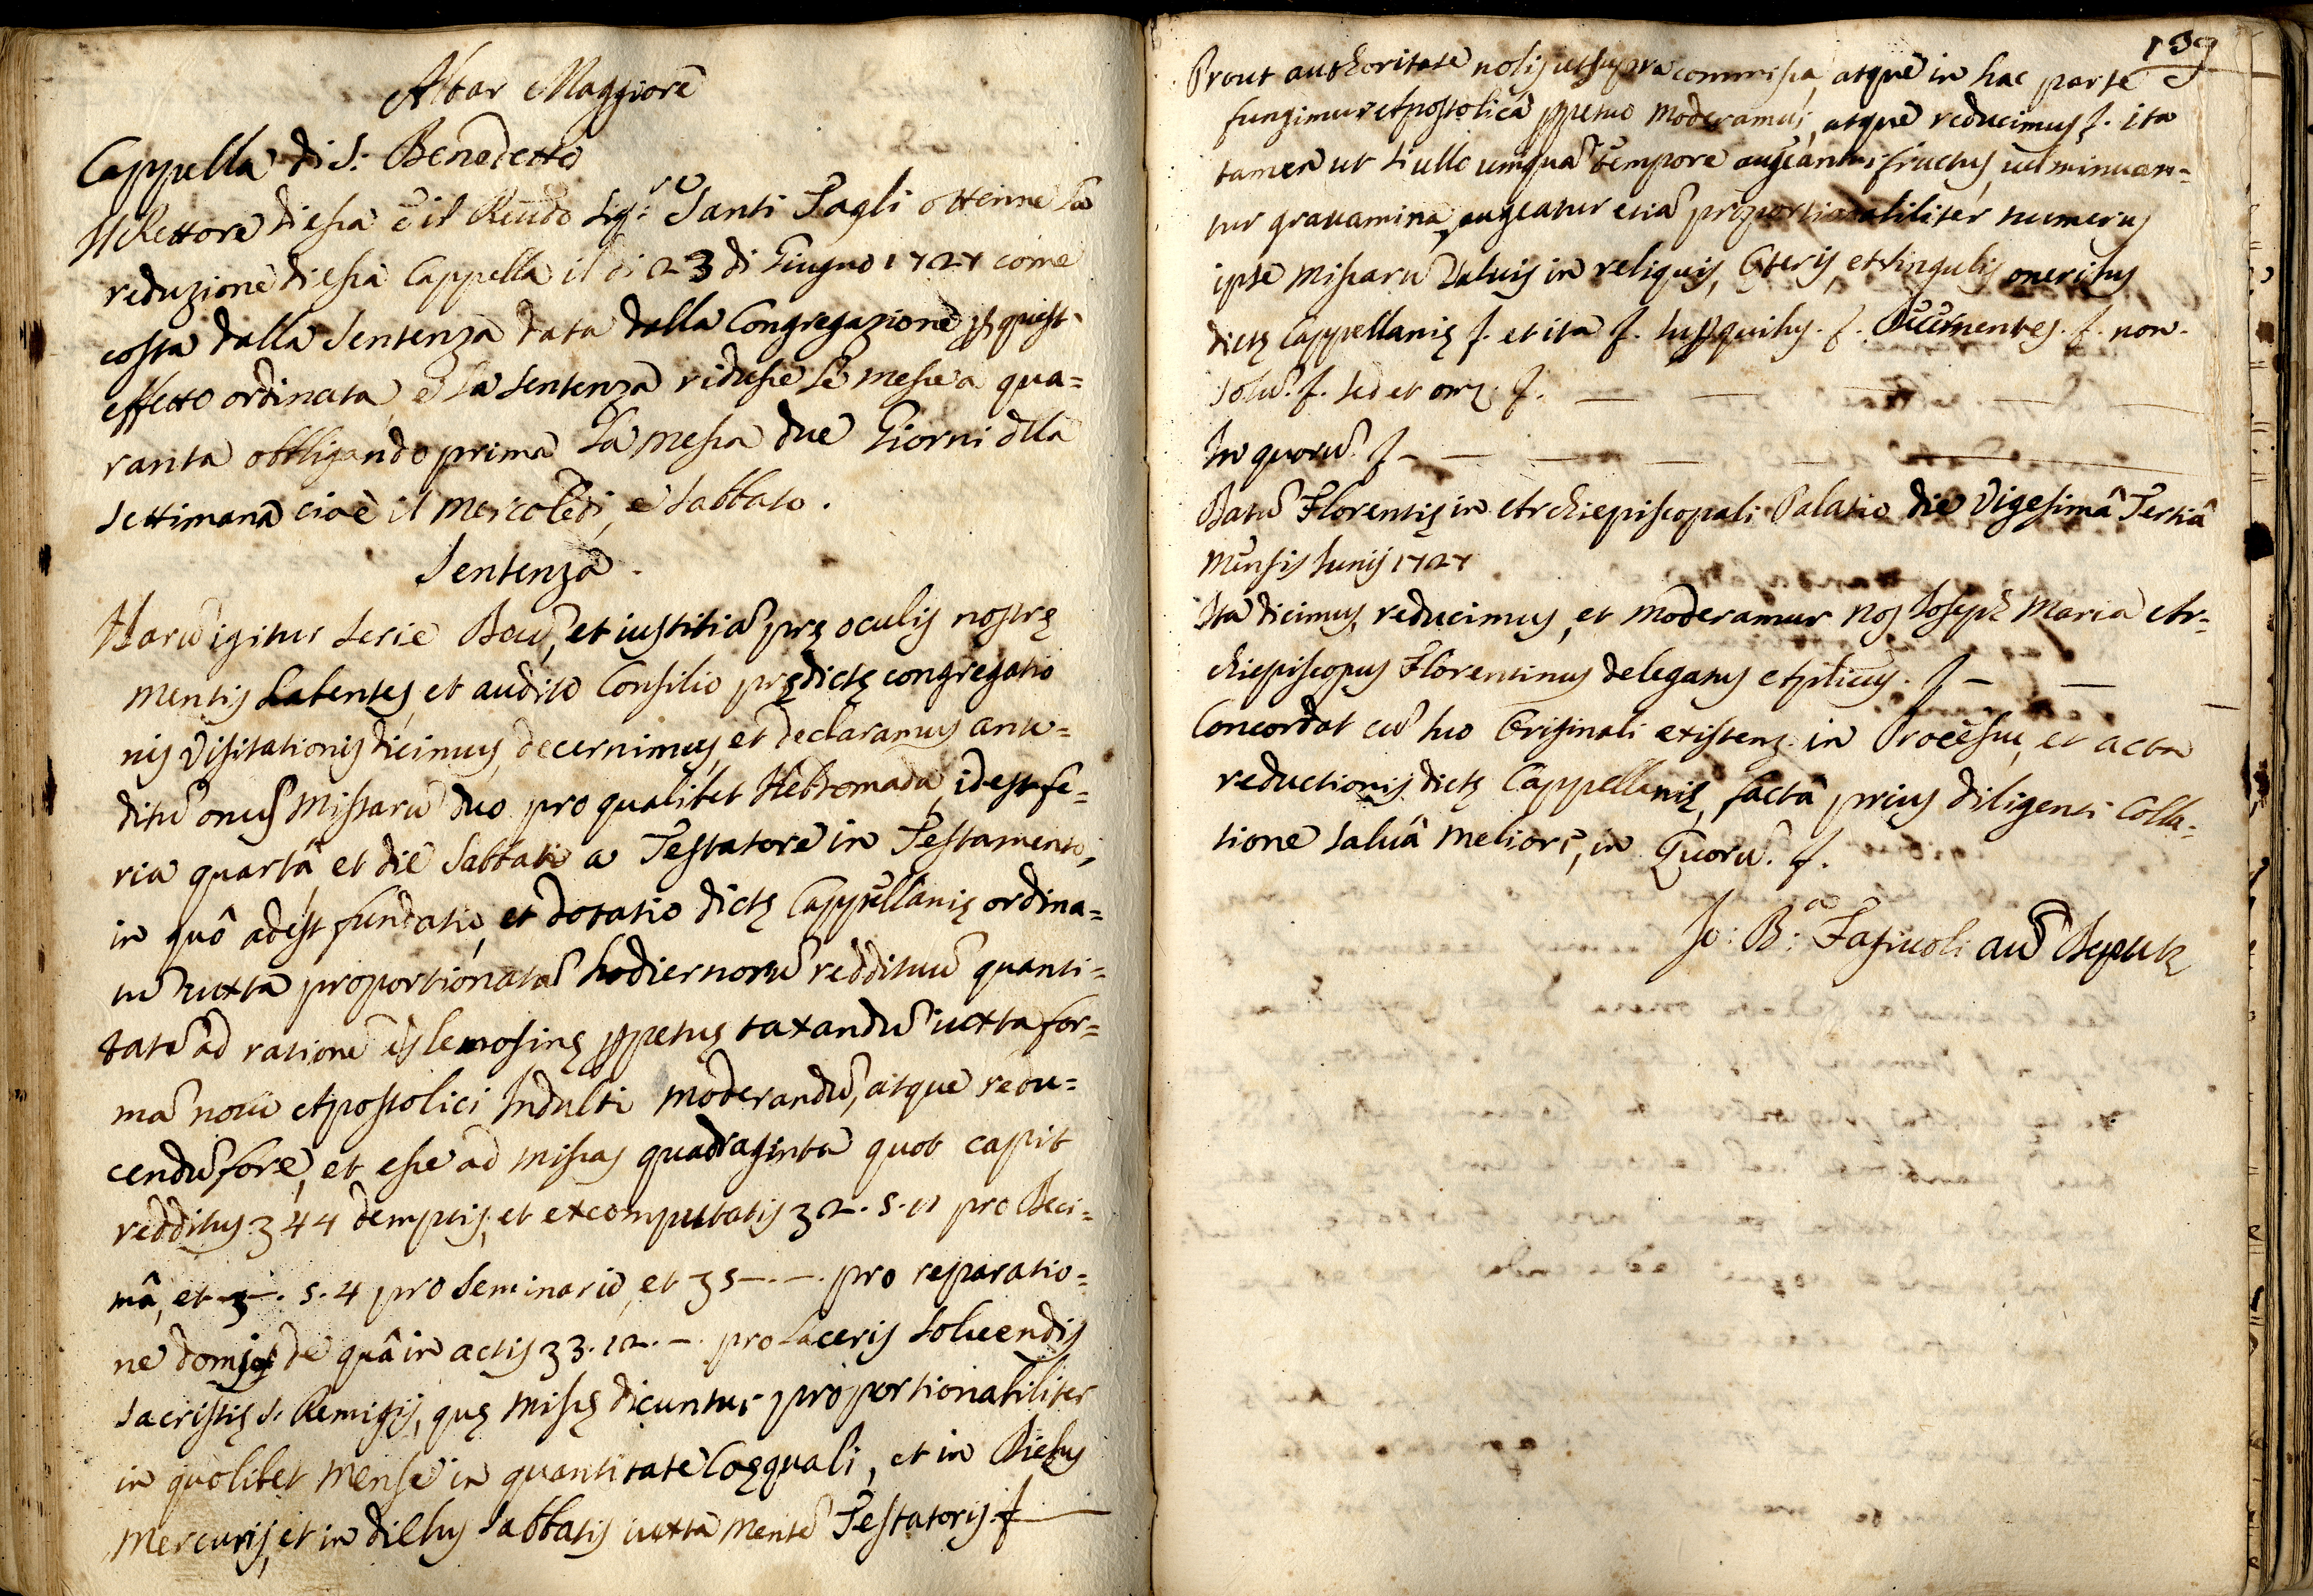 Altar Maggiore
Cappella di S: Benedetto
Il Rettore di essa è il Reudo Sig:re Santi Pagli ottenne la
reduzione di essa Cappella il dì 23 di Giugno 1727 come
costa dalla Sentenza data dalla Congregazione p quest
effetto ordinata, e la sentenza ridusse le messe a qua=
ranta obbligando prima la messa due Giorni dlla
settimana cioè il Mercoledì, e Sabbato.
Sentenza.
Harũ igitur serie Deũ, et iustitiã prę oculis nostrę
mentis habentes, et audito Consilio prędictę congregatio
nis Visitationis dicimus, decernimus, et declaramus ante=
ditũ onus Missarũ duo pro qualibet Hebdomada, idest fe=
ria quarta, et die Sabbati a Testatore in Testamento,
in quô adest fundatio, et dotatio dictę Cappellanię ordina=
tũ iuxta proportionatã hodiernorũ reddituũ quanti=
tatẽ ad rationẽ elemosinę ppetuę taxandũ iuxta for=
mã noui Apostolici Indulti moderandũ, atque redu=
cendũ fore, et esse ad missas quadraginta quot capit
redditus 3 44 demptis, et excomputatis 3 2. 5. 11 pro Deci=
mâ, et 3 -. 5. 4 pro Seminario, et 3 5 -. -. pro reparatio=
ne domus de quâ in actis 3 3. 12. -. pro Laceris soluendis
Sacristię S. Remigij, quę missę dicuntur proportionabiliter
in quolibet mense in quantitate Coęquali, et in Diebus
Mercurij, et in diebus Sabbatis iuxta mentẽ Testatoris f.
139
Prout authoritate nobis utsupra commissa, atque in hac parte
fungimur Apostolica ppetuo moderamur, atque reducimus f. ita
tamen ut si ullo umquã tempore augeantur fructus, uel minuan=
tur grauamina, augeatur etiã proportionabiliter numerus
ipse missarũ saluis in reliquis, Cęteris, et singulis oneribus
dictę Cappellanię f. et ita f. supquibus. f. Decernentes. f. non
solũ. f. sed et omi f.
In quorũ. f
Datũ Florentię in Archiepiscopali Palatio die Vigesimâ Tertiâ
mensis Junij 1727
Ita dicimus, reducimus, et moderamur nos Joseph Maria Ar=
chiepiscopus Florentinus delegatus Aplicus. f
Concordat cũ suo Originali existenz. in Processu, et acta
reductionis dictę Cappellanię, facta prius diligenti Colla=
tione saluâ meliori, in Quorũ. f.
Jo: B:a Fagiuoli